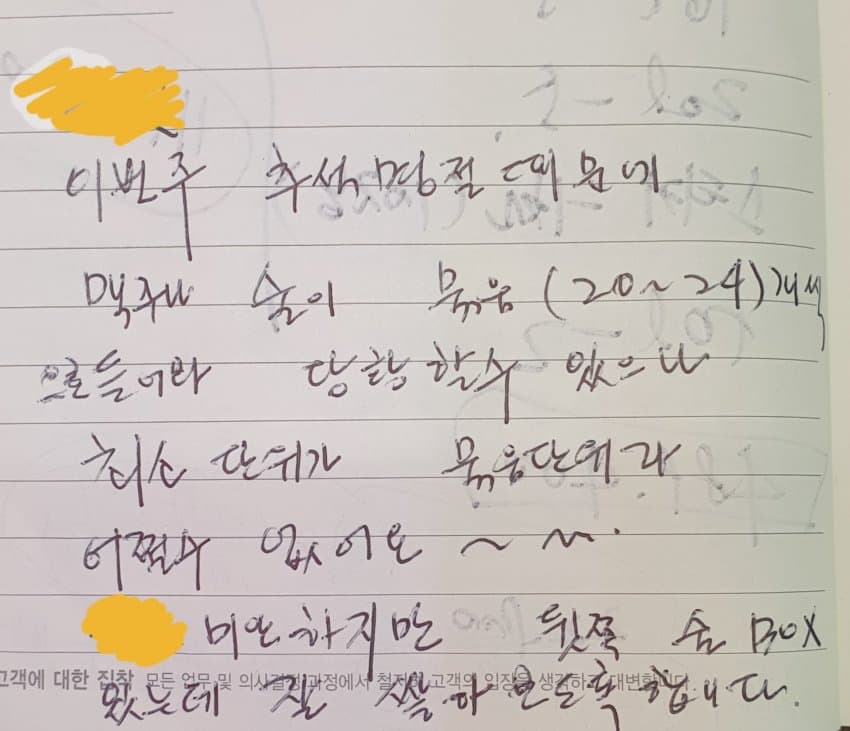 이번주 추석 명절 때문에
맥주나 술이 묶음 (20~24)개씩
으로 들어와 당황 할수 있으나
최소 단위가 묶음단위라
어쩔수 없어요 ~
미안하지만 뒷쪽 술 BOX
고객에 대한 집착 모든 업무 및 의사결정 과정에서 철저히 고객의 입장을 생각하고 대변합니다.
있는데 잘 쌓아 오도록 합니다.